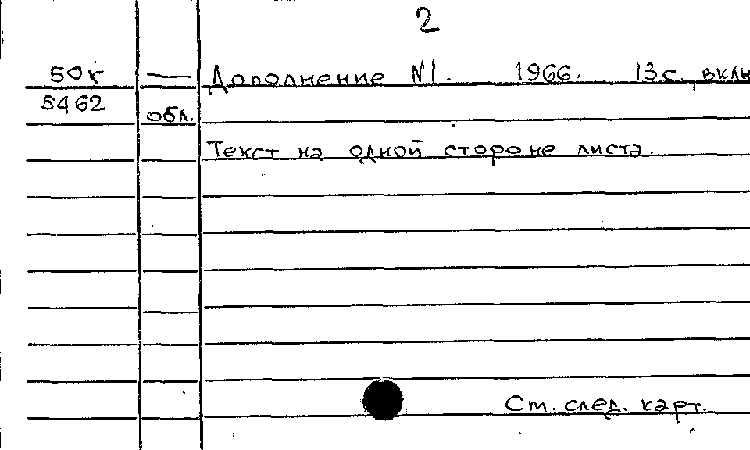 2
50к — Дополнение №1. 1966. 13с. вклю
5462 обл.
Текст на одной стороне листа.
См. след. карт.